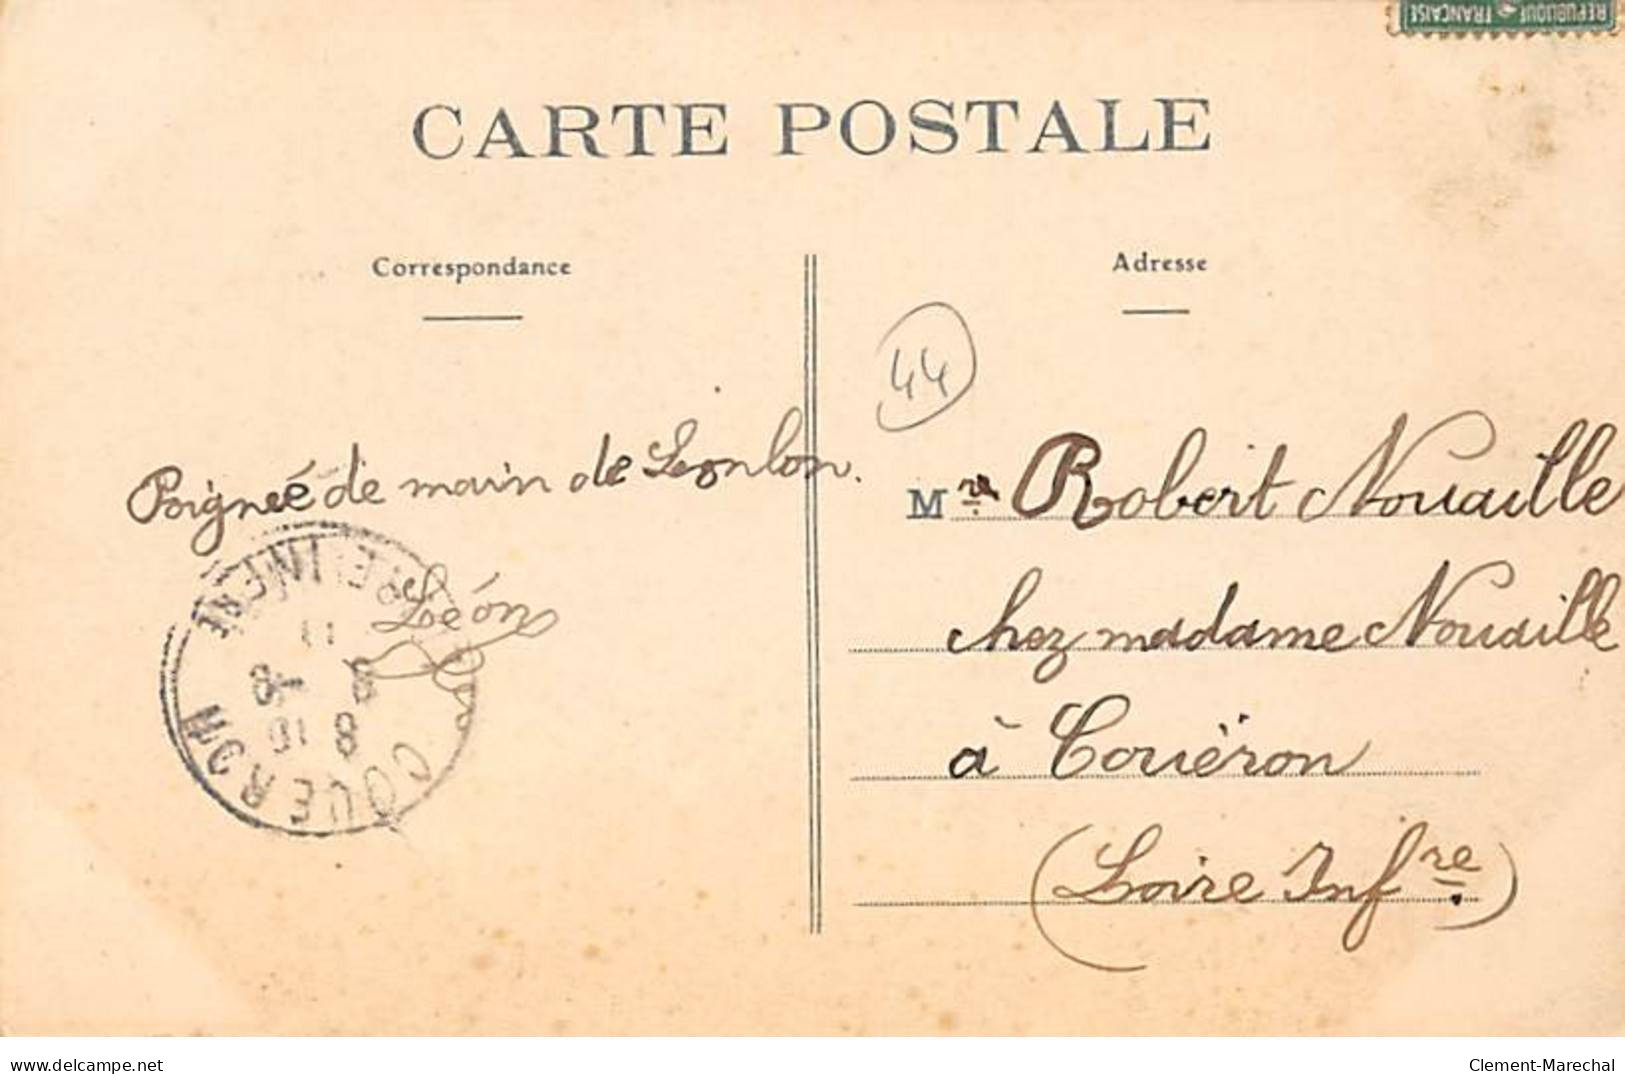 REPUBLIQUE FRANÇAISE
CARTE POSTALE
Correspondance
Adresse
44
Poigneé de main de Leonlon.
Léon
Mre Robert Nouaille
chez madame Nouaille
à Couëron
(Loire Infre)
COUERON
LOIRE INFERE
delcampe.net
Clement-Marechal